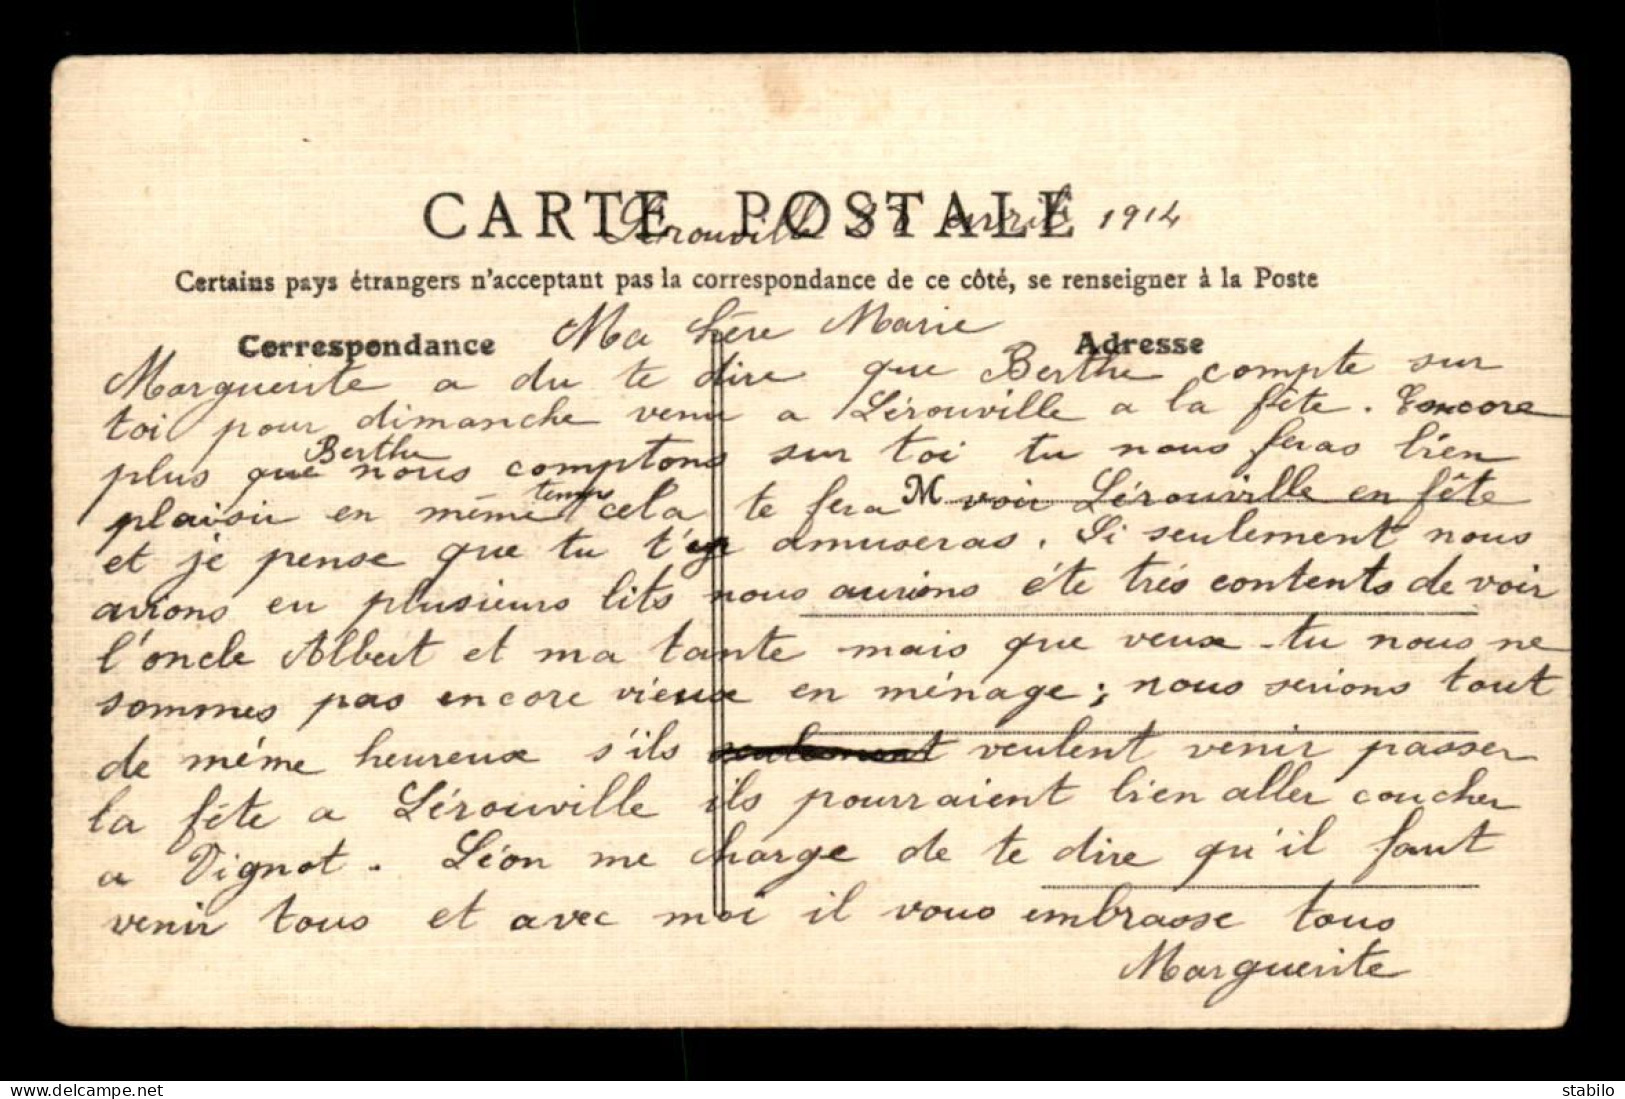 CARTE POSTALE
Lérouville 27 avril 1914
Certains pays étrangers n'acceptant pas la correspondance de ce côté, se renseigner à la Poste
Correspondance
Ma Chère Marie
Adresse
Marguerite a du te dire que Berthe compte sur
toi pour dimanche venu a Lérouville a la fête. Encore
plus que Berthe nous comptons sur toi tu nous feras bien
plaisir en même temps cela te fera M voir Lérouville en fête
et je pense que tu t'y amuseras. Si seulement nous
avions eu plusieurs lits nous aurions éte très contents de voir
l'oncle Albert et ma tante mais que veux-tu nous ne
sommes pas encore vieux en ménage; nous serions tout
de même heureux s'ils seulement veulent venir passer
la fête a Lérouville ils pourraient bien aller coucher
a Vignot. Léon me charge de te dire qu'il faut
venir tous et avec moi il vous embrasse tous
Marguerite
www.delcampe.net
stabilo